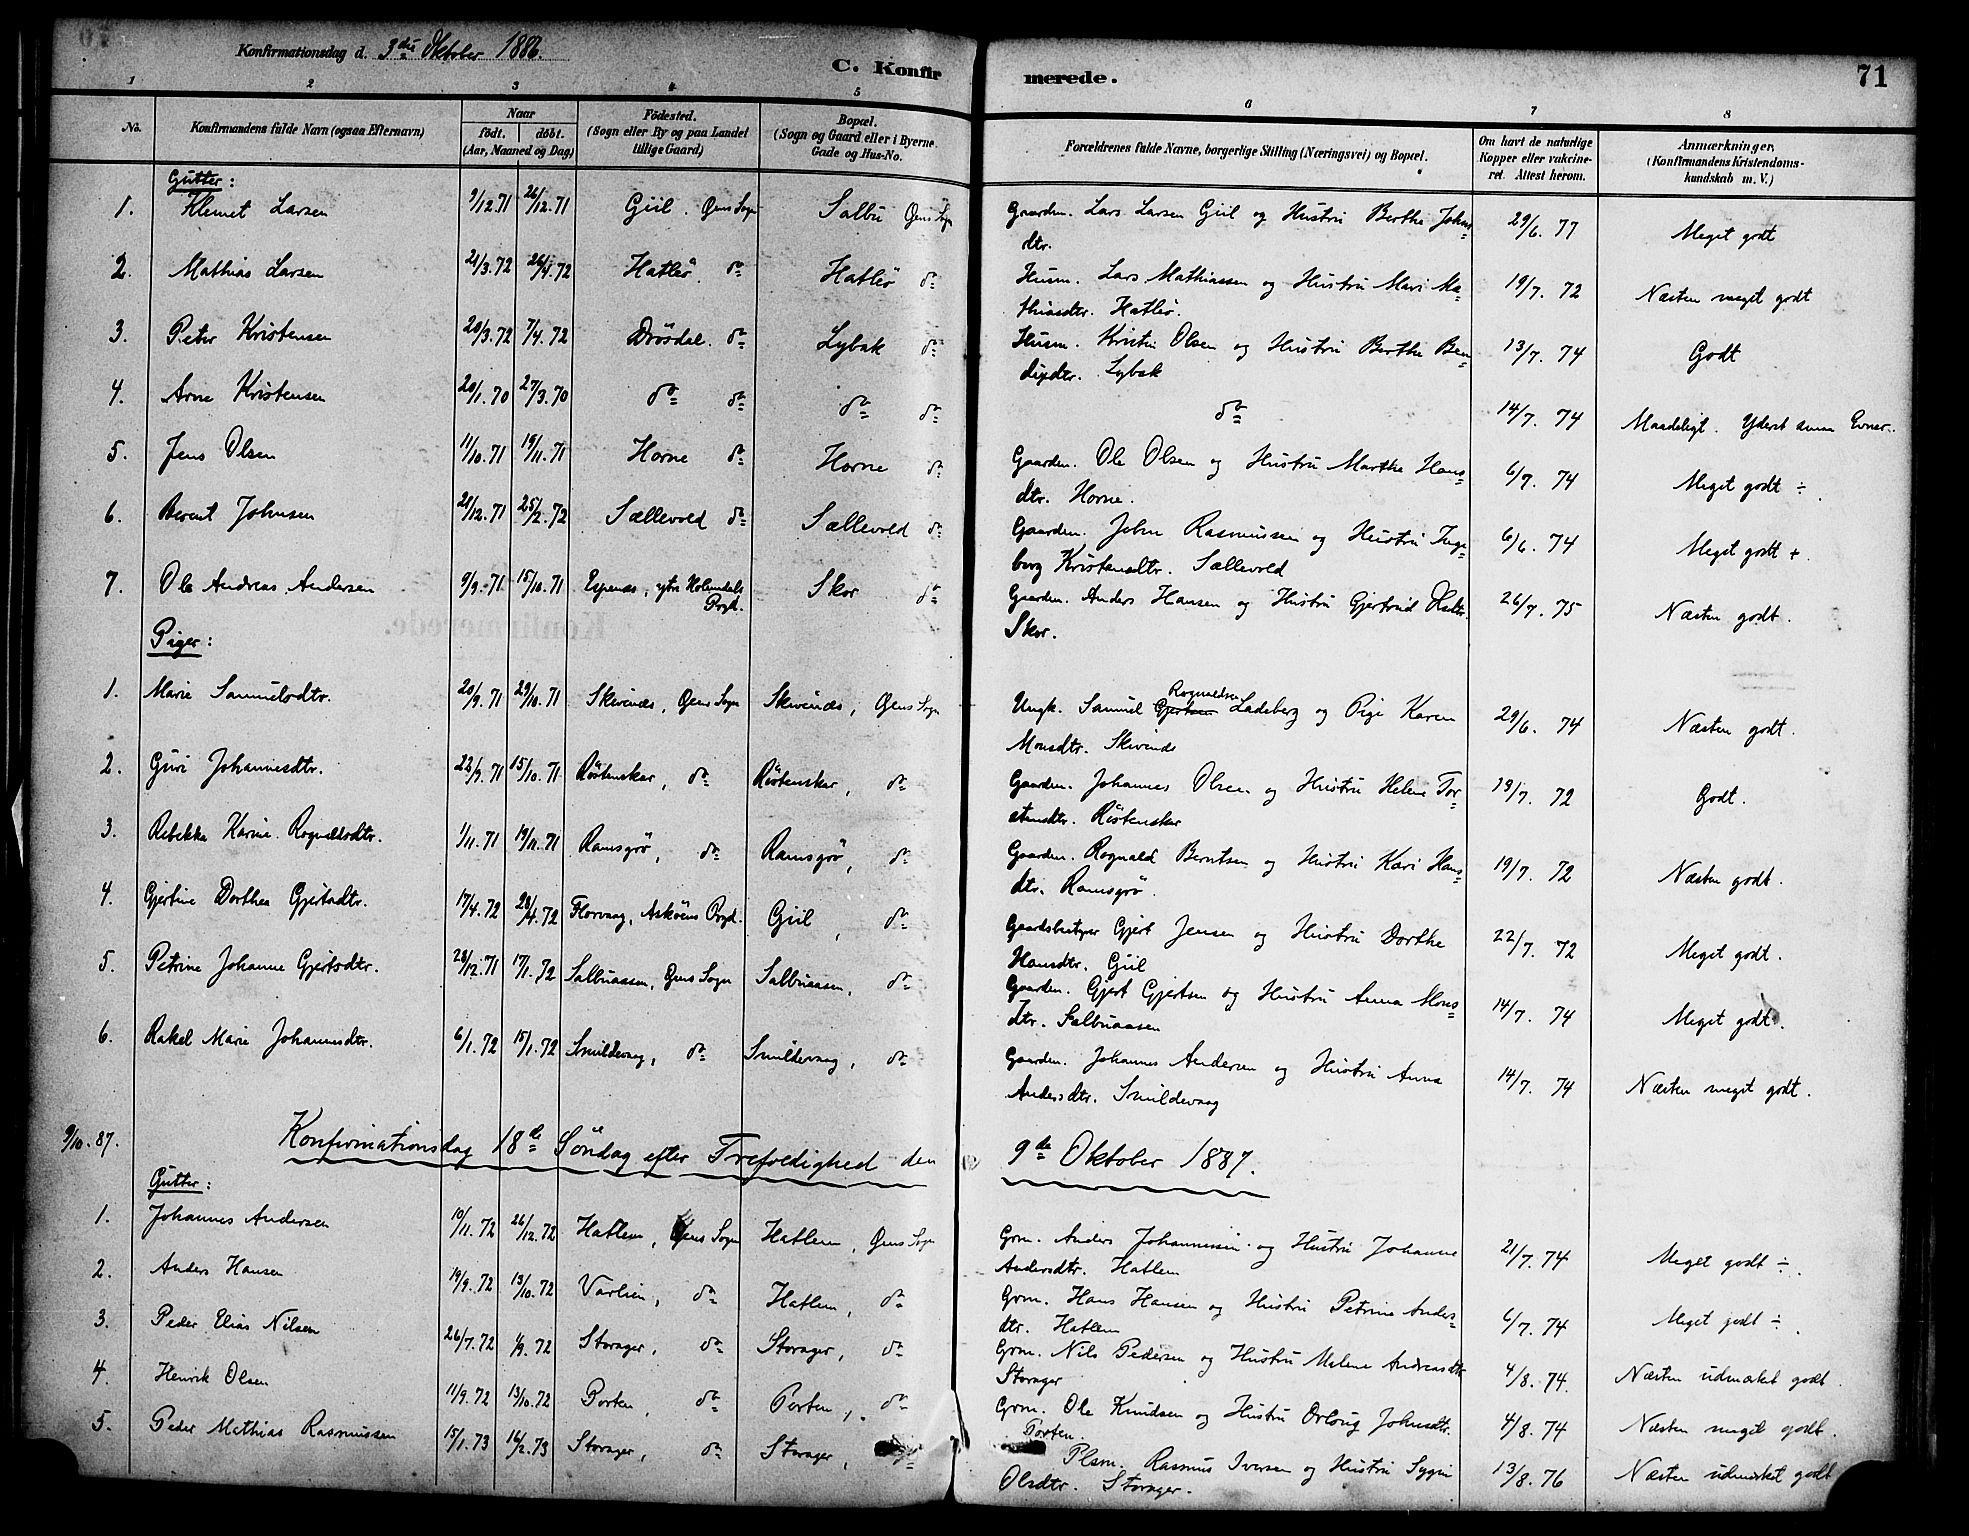 Konfirmationsdag d. 3die Oktober 1886.
C. Konfirmerede. 71
1 2 3 4 5 6 7 8
No. Konfirmandens fulde Navn (ogsaa Efternavn) Naar födt. döbt. (Aar, Maaned og Dag) Födested. (Sogn eller By og paa Landet tillige Gaard) Bopæl. (Sogn og Gaard eller i Byerne Gade og Hus-No. Forældrenes fulde Navne, borgerlige Stilling (Næringsvei) og Bopæl. Om havt de naturlige Kopper eller vakcineret. Attest herom. Anmærkninger, (Konfirmandens Kristendomskundskab m. V.)
Gutter:
1. Klemet Larsen 9/12.71 26/12.71 Giil. Gens Sogn Salbu Gens Sogn Gaardm. Lars Larsen Giil og Hustru Berthe Johns= 29/6. 77 Meget godt
dtr.
2. Mathias Larsen 21/3.72 26/4.72 Hatlö do Hatlö do Husm. Lars Mathiassen og Hustru Mari Ma= 19/7. 72 Næsten meget godt
thiasdtr. Hatlö.
3. Peter Kristensen 20/3.72 7/4.72 Drösdal. do Lybak do Husm. Kristen Olsen og Hustru Berthe Ben= 13/7. 74 Godt
dixdtr. Lybak
4. Arne Kristensen 20/1.70 27/3.70 do do do do do 14/7. 74 Maadeligt. Yderst Evner.
5. Jens Olsen 11/10.71 19/11.71 Horne do Horne do Gaardm. Ole Olsen og Hustru Marthe Hans= 6/7. 74 Meget godt ÷.
dtr. Horne.
6. Berent Johnsen 21/12.71 25/2.72 Sællevold do Sællevold do Gaardm. John Rasmussen og Hustru Inge= 6/6. 74 Meget godt +.
borg Kristensdtr. Sællevold
7. Ole Andreas Andersen 9/9.71 15/10.71 Espenes, ytre Holmedals Prgd. Skor do Gaardm. Anders Hansen og Hustru Gjertrud Olsdtr. 26/7. 75 Næsten godt.
Skor.
Piger:
1. Marie Samuelsdtr. 20/9.71 29/10.71 Skivenes, Gens Sogn Skivenes, Gens Sogn Ungk. Samuel Gjertsen Rognaldsen Ladeberg og Pige Karen 29/6. 74 Næsten godt.
Monsdtr. Skivenes
2. Guri Johannesdtr. 22/9.71 15/10.71 Röstenskar, do Röstenskar, do Gaardm. Johannes Olsen og Hustru Helene Tor= 19/7. 72 Godt.
stensdtr. Röstenskar
3. Rebekka Karine Rognaldsdtr. 1/11.71 19/11.71 Ramsgrö, do Ramsgrö, do Gaardm. Rognald Berntsen og Hustru Kari Hans= 19/7. 72 Næsten godt.
dtr. Ramsgrö.
4. Gjertine Dorthea Gjertsdtr. 17/4.72 28/4.72 Florvaag, Asköens Prgd. Giil, do Gaardsbruger Gjert Jensen og Hustru Dorthe 22/7. 72 Meget godt.
Hansdtr. Giil
5. Petrine Johanne Gjertsdtr. 28/12.71 17/1.72 Salbuaasen, Gens Sogn Salbuaasen, do Gaardm. Gjert Gjertsen og Hustru Anna Mons= 14/7. 74 Meget godt.
dtr. Salbuaasen
6. Rakel Marie Johannesdtr. 6/1.72 15/1.72 Smildevaag, do Smildevaag, do Gaardm. Johannes Andersen og Hustru Anna 14/7. 74 Næsten meget godt.
Andersdtr. Smildevaag
9/10.87. Konfirmationsdag 18de Söndag efter Trefoldighed den 9de Oktober 1887.
Gutter:
1. Johannes Andersen 10/11.72 26/12.72 Hatlem, Gens Sogn Hatlem, Gens Sogn Grm. Anders Johannessen og Hustru Johanne 21/7. 74 Meget godt ÷.
Andersdtr. Hatlem
2. Anders Hansen 19/9.72 13/10.72 Varlien, do Hatlem, do Grm. Hans Hansen og Hustru Petrine Anders= 6/7. 74 Meget godt ÷.
dtr. Hatlem
3. Peder Elias Nilsen 26/7.72 1/9.72 Storager, do Storager, do Grm. Nils Pedersen og Hustru Malene Andreasdtr. 4/8. 74. Næsten udmærket godt.
Storager
4. Henrik Olsen 11/9.72 13/10.72 Porten, do Porten, do Grm. Ole Knudsen og Hustru Orloug Johnsdtr. 4/8. 74 Næsten meget godt.
Porten.
5. Peder Mathias Rasmussen 15/1.73 16/2.73 Storager, do Storager, Plsm. Rasmus Iversen og Hustru Sygni 13/8. 76 Næsten udmærket godt
Olsdtr. Storager.